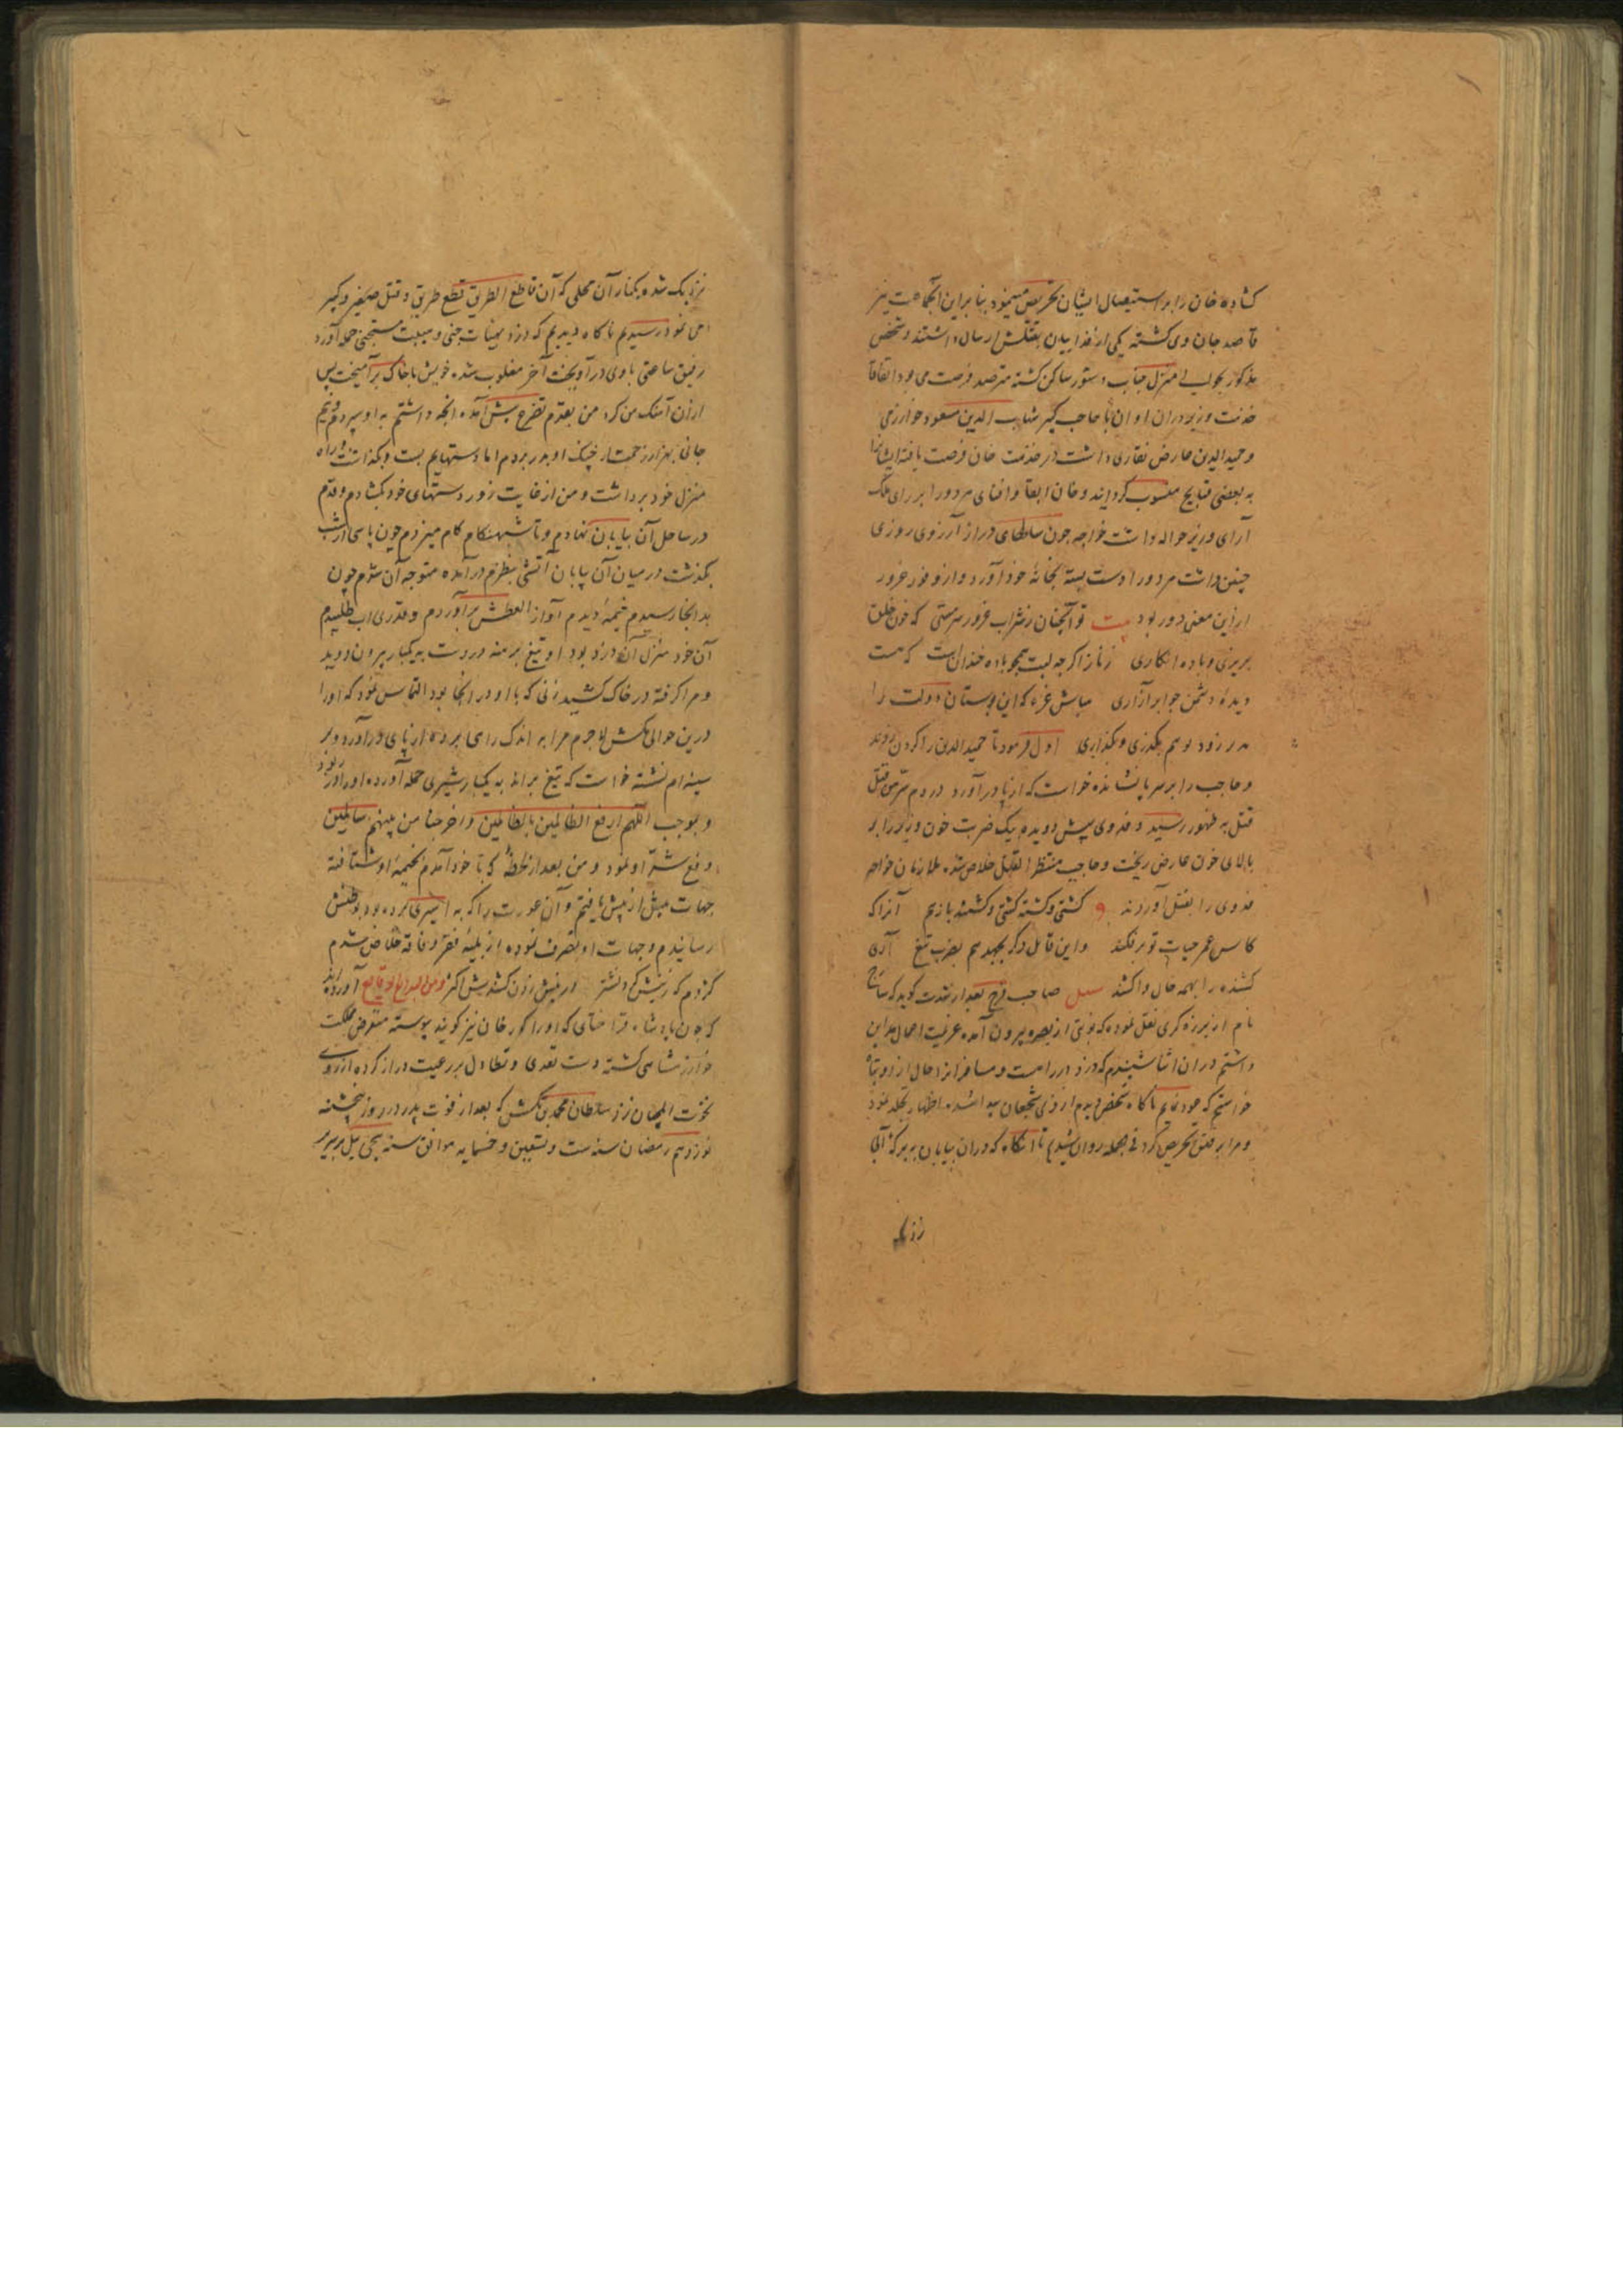 کشاده خان را بر استیصال ایشان تحریض مینمود بنا برین آنجماعت نیز
قاصد جان وی کشته یکی از فداییان بقتلش ارسال داشتند و شخص
مذکور بحوالی منزل جناب دستور ساکن کشته مترصد فرصت می بود اتفاقا
خدمت وزیر در ان اوان با حاجب کبیر شهاب الدین مسعود خوارزمی
و حمید الدین عارض نقاری داشت در خدمت خان فرصت یافته ایشانرا
به بعضی قبایح منسوب کردانید و خان ابقا و افنای هر دو را بر رای ملک
آرای وزیر حواله داشت خواجه چون سالهای دراز آرزوی روزی
چنین داشت هر دو را دست بسته بخانه خود آورد و از وفور غرور
ازین معنی دور بود بیت تو آنچنان ز شراب غرور سرمستی که خون خلق
بریزی و باده انکاری زناز اکرچه لبت همچو باده خندان است که هست
دیده دشمن جو ابر آزاری مباش غره که این بوستان دولت را
زود هم بکذری و بکذاری اول فرمود تا حمید الدین را کردن زدند
و حاجب را بر سر پا نشانده خواست که از پا در آورد در دم
قتل به ظهور رسید و فدوی پیش دویده بیک ضربت خون وزیر را بر
بالای خون عارض ریخت و حاجب منتظر القتل خلاص شد ملازمان خواجه
فدوی را بقتل آوردند کشتی و کشته کشتی و کشتند بازهم آنرا که
کاس عمر حیات تو بر فکند واین قاتل دکر بجهد هم بضرب تیغ آری
کشنده را بهمه حال واکشند صاحب فرج بعد از شدت کوید که
نام از بزرکری نقل نموده که نوبتی از بصره بیرون آمده عزیمت اعمال مداین
داشتم در ان اثنا شنیدم که دزد در راهست و مسافر را حال از و تباه
خواستم که عود نمایم ناکاه شخصی دیدم از زی شجعان پیدا شد اظهار تجلد نمود
و مرا بر رفتن تحریص کرد فی الجمله روان شدیم تا آنکاه که در ان بیابان به برکه آبی
نزدیک
نزدیک شده بکنار آن محلی که آن قاطع الطریق قطع طریق و قتل صغیر و کبیر
می نمود رسیدیم ناکاه دیدیم که دزد بهیئات جنی و هیبت حمله آورد
رفیق ساعتی با وی در آویخت آخر مغلوب شد خویش با خاک بر آمیخت پس
ازان آهنک من کرد من بقدم تضرع پیش آمده آنچه داشتم به او سپردم و نیم
جانی بهزار زحمت از چنک او بدر بردم اما دستهایم بست و بکذاشت و راه
منزل خود برداشت و من از غایت زور دستهای خود بکشادم و قدم
در ساحل آن بیابان نهادم و تا شبهنکام کام میزدم چون پاسی از شب
بکذشت در میان آن بیابان آتشی بنظرم در آمده متوجه آن شدم چون
بدانجا رسیدم خیمه دیدم آواز العطش بر آوردم و قدری آب طلبیدم
آن خود منزل آن دزد بود او تیغ برهنه در دست به یکبار بیرون دوید
و مرا کرفته در خاک کشید زنی که با او در آنجا بود التماس نمود که او را
درین حوالی مکش لاجرم مرا به اندک راهی برده از پای در آورد و بر
سینه ام نشسته خواست که تیغ براند به یکبار شیری حمله آورده او را در ربود
و بموجب اللهم ارفع الظالمین بالظالمین و اخرجنا من بینهم سالمین
دفع شر او نمود و من بعد از لحظه که با خود آمدم بخیمه او شتافته
جهات بیش از پیش یافتم و آن عورت را که به اسیری برده بود بوطنش
رسانیدم و جهات او تصرف نموده از بلیه فقر و فاقه خلاص شدم
کژدم که ز نیش کرد نشتر از نیش زدن کشندیش اکثر و من البدایع الوقایع آورده اند
که چون پادشاه قرا ختای که او را کور خان نیز کویند پیوسته متعرض مملکت
خوارزمشاهی کشته دست تعدی و تطاول بر رعیت دراز کرده از روی
نخوت ایلچیان نزد سلطان محمد بن تکش که بعد از فوت پدر در روز پنجشنبه
نوزدهم رمضان سنه ست و تسعین و خمسمایه موافق سنه ییل بر سریر